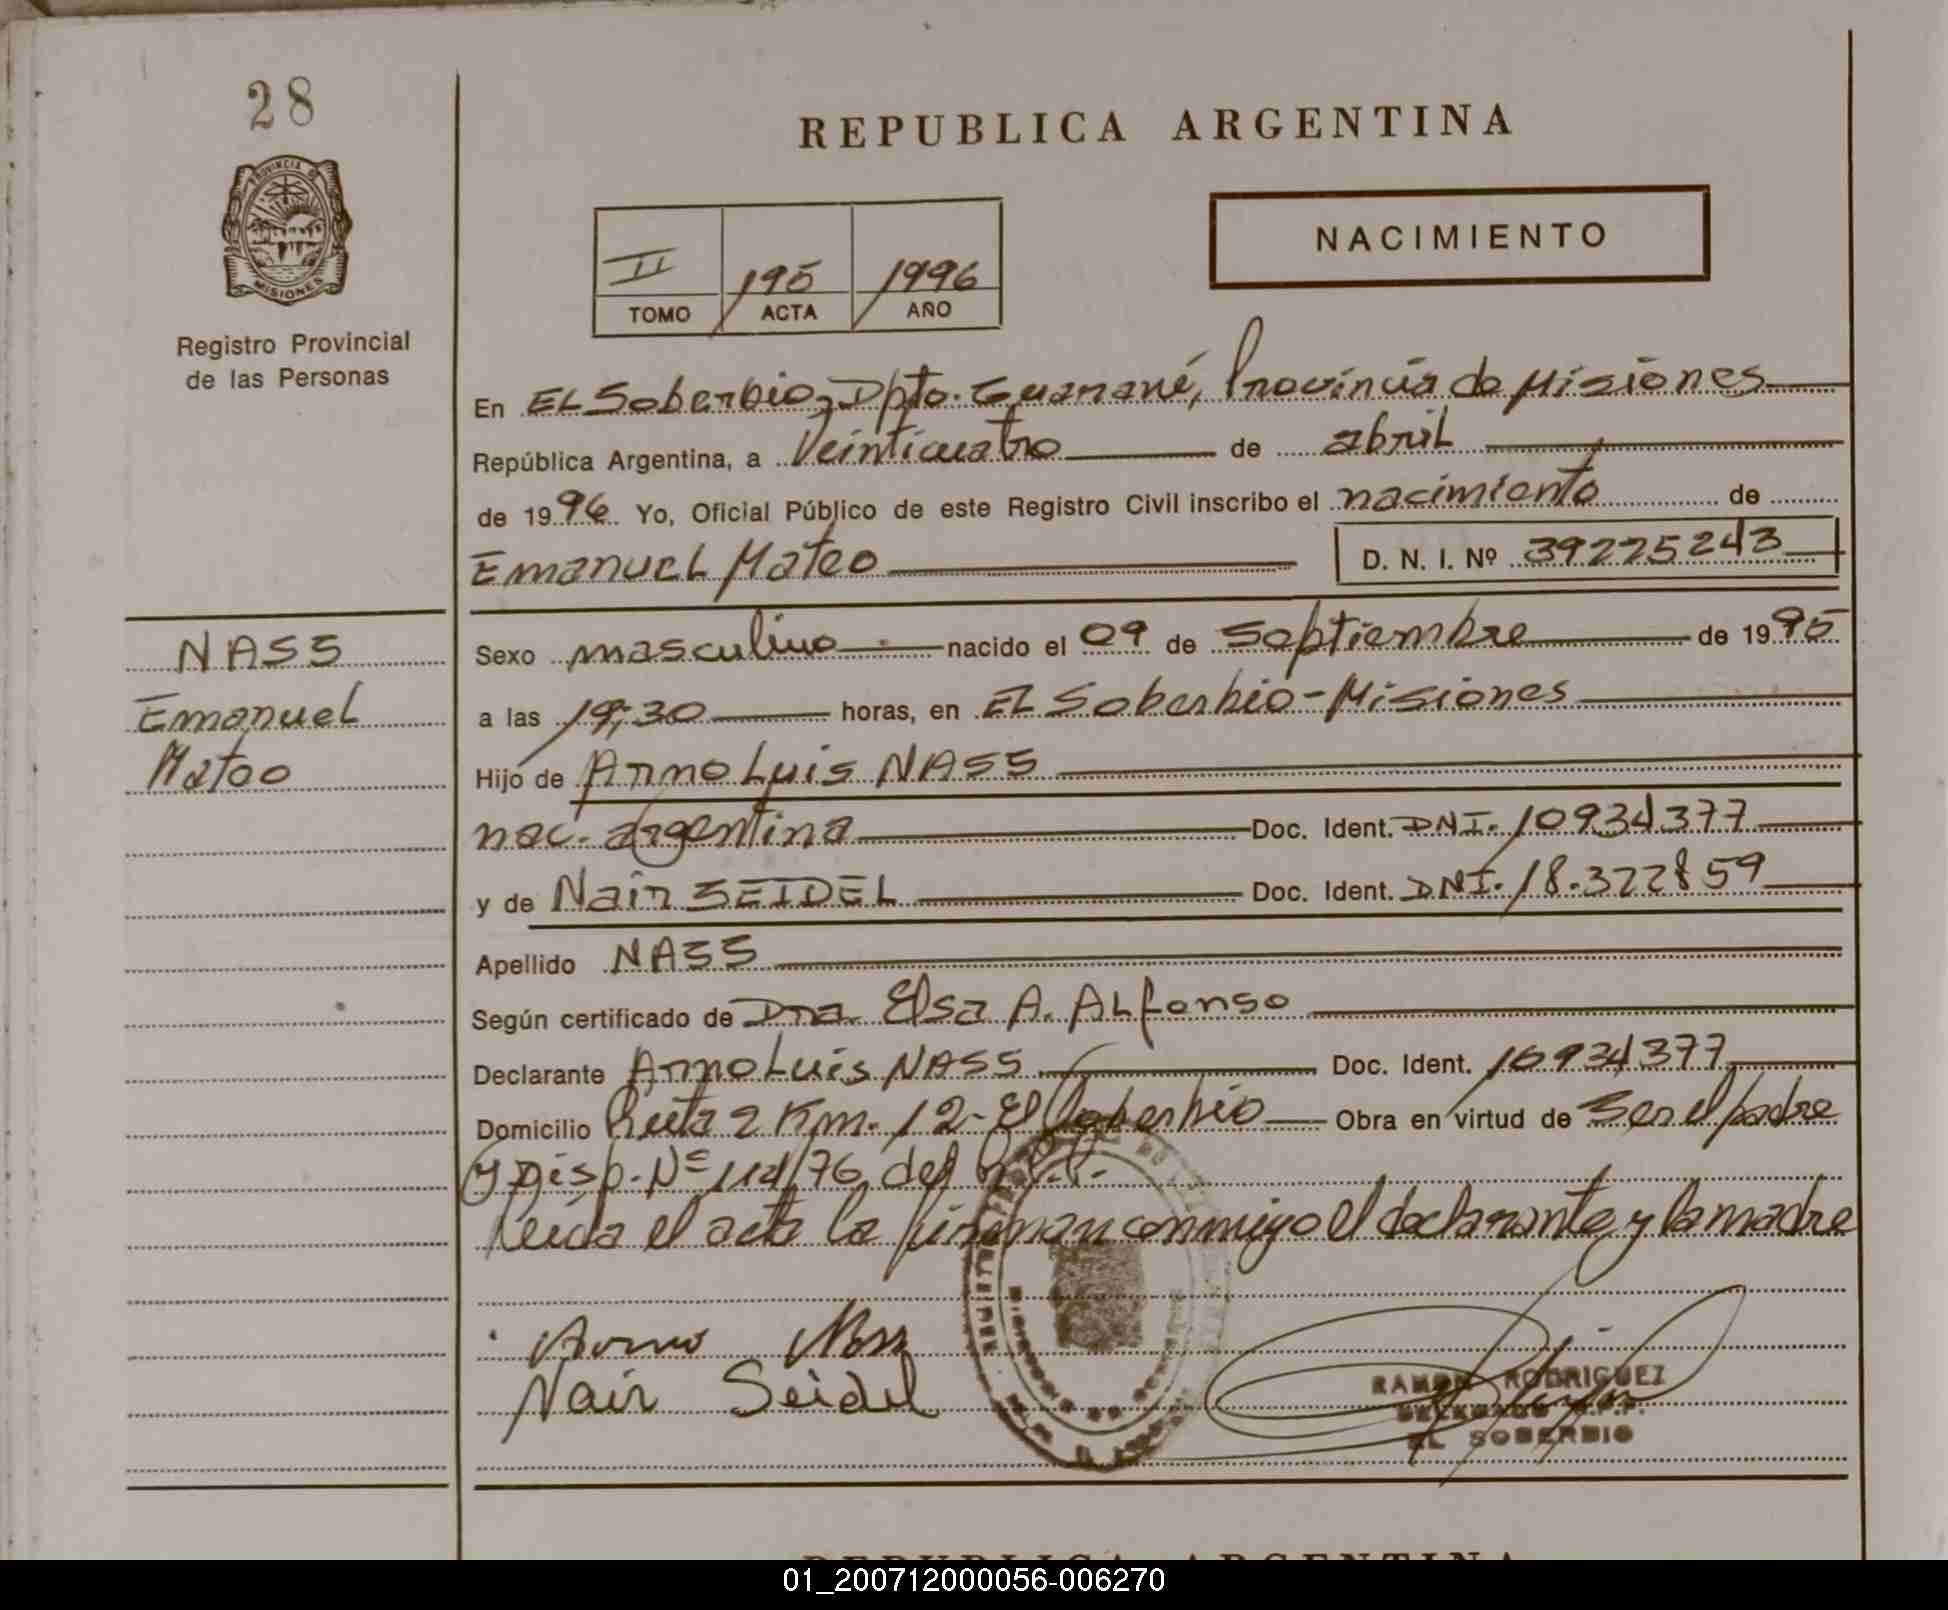 28
PROVINCIA DE
MISIONES
Registro Provincial
de las Personas
REPUBLICA ARGENTINA
NACIMIENTO
II 195 1996
TOMO ACTA AÑO
En EL Soberbio, Dpto. Guaraní, Provincia de Misiones
República Argentina, a Veinticuatro de abril
de 1996 Yo, Oficial Público de este Registro Civil inscribo el nacimiento de
Emanuel Mateo D. N. I. Nº 39225243
NASS
Emanuel
Mateo
Sexo masculino nacido el 09 de Septiembre de 1995
a las 19,30 horas, en EL Soberbio - Misiones
Hijo de Arno Luis NASS
nac. argentina Doc. Ident. DNI. 10934377
y de Nair SEIDEL Doc. Ident. DNI. 18.322859
Apellido NASS
Según certificado de Dra. Elsa A. ALfonso
Declarante Arno Luis NASS Doc. Ident. 10934377
Domicilio Ruta 2 Km. 12 - El Soberbio Obra en virtud de Ser el padre
y Disp. Nº 114/76 del R.P.P.
Leída el acta la firman conmigo el declarante y la madre
Arno Nass
Nair Seidel
RAMON RODRIGUEZ
R.P.P.
EL SOBERBIO
REPUBLICA ARGENTINA
01_200712000056-006270